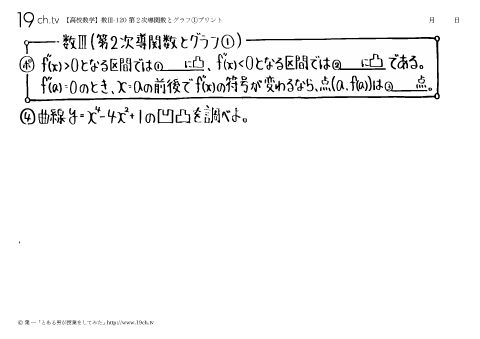 19 ch.tv 【高校数学】数Ⅲ-120 第２次導関数とグラフ①プリント 月 日
数Ⅲ(第2次導関数とグラフ①)
ポ f"(x)>0となる区間では① に凸、f"(x)<0となる区間では② に凸である。
f"(a)=0のとき、x=aの前後でf"(x)の符号が変わるなら、点(a,f(a))は③ 点。
④曲線y=x⁴-4x²+1の凹凸を調べよ。
© 葉一「とある男が授業をしてみた」http://www.19ch.tv